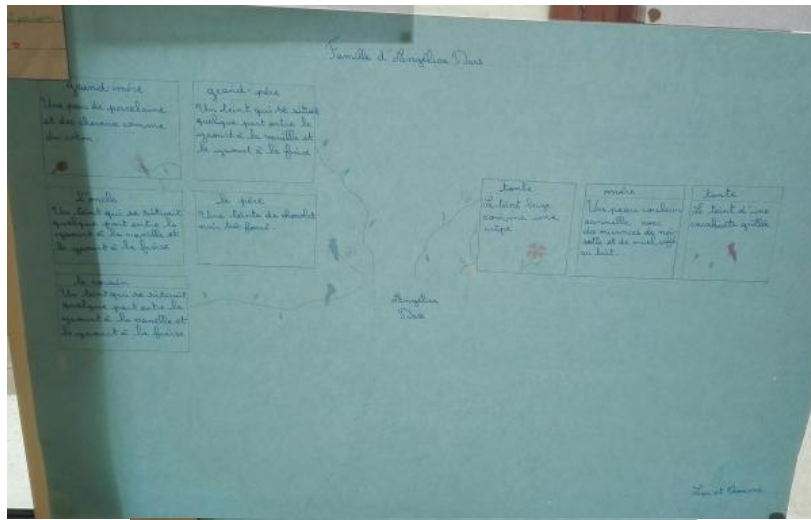 Famille d'Angélica Dass
grand-mère
Une peau de porcelaine
et des cheveux comme
du coton.
grand-père
Un teint qui se situe
quelque part entre le
yaourt à la vanille et
le yaourt à la fraise
l'oncle
Un teint qui se situait
quelque part entre le
yaourt à la vanille et
le yaourt à la fraise
le père
Une teinte de chocolat
noir très foncé.
le cousin
Un teint qui se situait
quelque part entre le
yaourt à la vanille et
le yaourt à la fraise
tante
Le teint beige
comme une
crêpe
mère
Une peau couleur
cannelle avec
de nuances de noi
sette et de miel
au lait.
tante
Le teint d'une
cacahuète grillée
Angélica
Dass